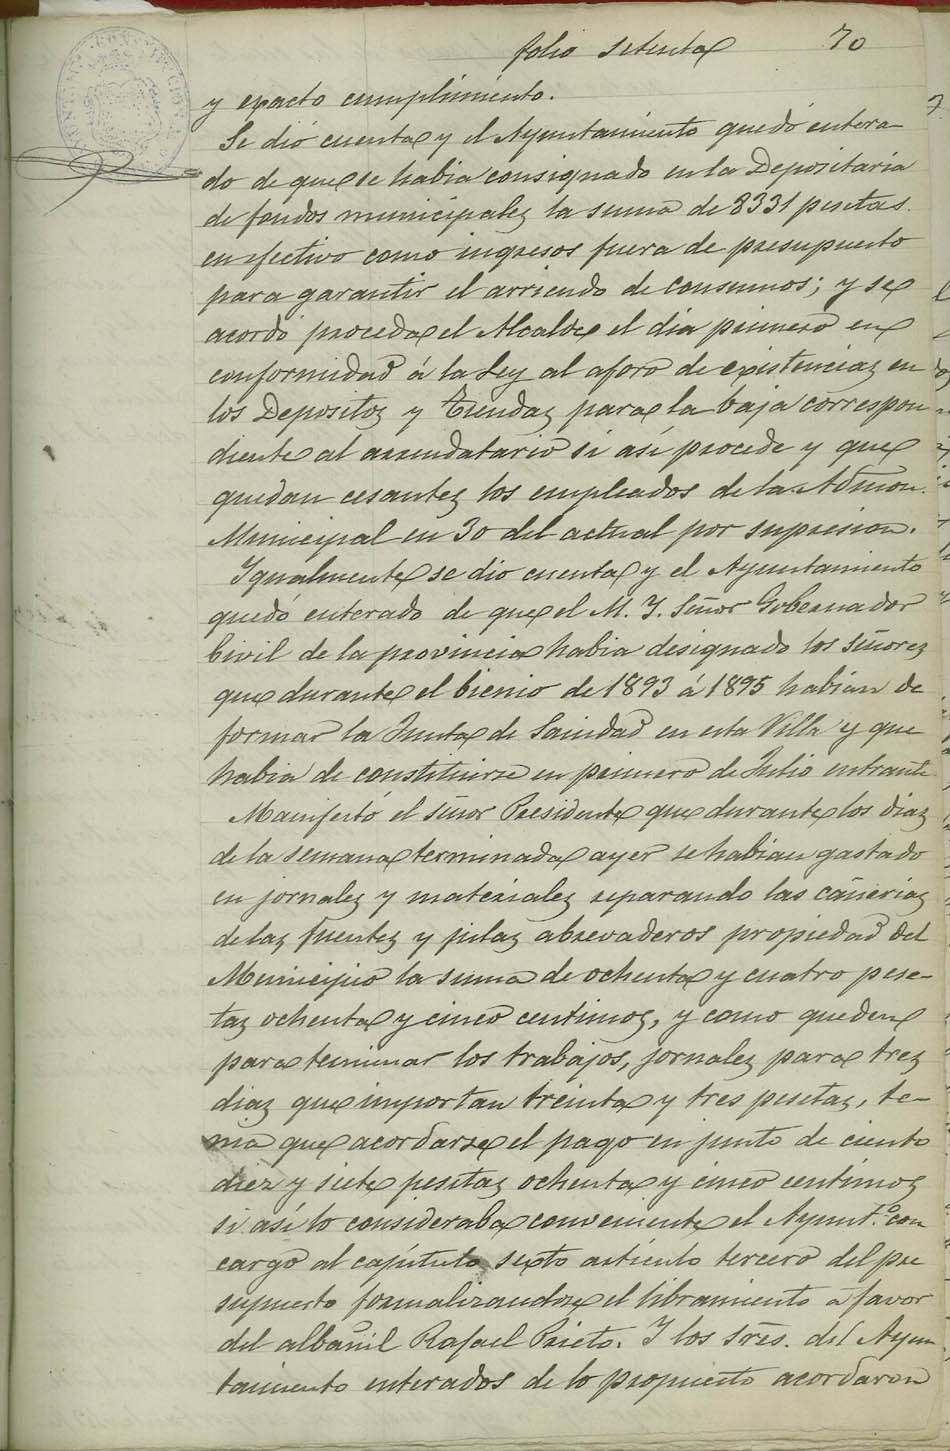 folio setenta 70
y exacto cumplimiento.
Se dió cuenta y el Ayuntamiento quedó entera-
do de que se habia consignado en la Depositaria
de fondos municipales la suma de 8331 pesetas
en efectivo como ingresos fuera de presupuesto
para garantir el arriendo de consumos; y se
acordó proceda el Alcalde el dia primero en
conformidad á la Ley al aforo de existencias en
los Depositos y Tiendas para la baja correspon
diente al arrendatario si así procede y que
quedan cesantes los empleados de la Admon.
Municipal en 30 del actual por supresion.
Igualmente se dio cuenta y el Ayuntamiento
quedó enterado de que el M. Y. Señor Gobernador
Civil de la provincia habia designado los señores
que durante el bienio de 1893 á 1895 habian de
formar la Junta de Sanidad en esta Villa y que
habia de constituirse en primero de Julio entrante
Manifestó el señor Presidente que durante los dias
de la semana terminada ayer se habian gastado
en jornales y materiales reparando las cañerias
de las fuentes y pilas abrevaderos propiedad del
Municipio la suma de ochenta y cuatro pese-
tas ochenta y cinco centimos, y como queden
para terminar los trabajos, jornales para tres
dias que importan treinta y tres pesetas, te-
nia que acordarse el pago en junto de ciento
diez y siete pesetas ochenta y cinco centimos
si así lo consideraba conveniente el Ayunt.º con
cargo al capítulo sexto artículo tercero del pre
supuesto formalizandose el libramiento á favor
del albañil Rafael Prieto. Y los Sres. del Ayun
tamiento enterados de lo propuesto acordaron